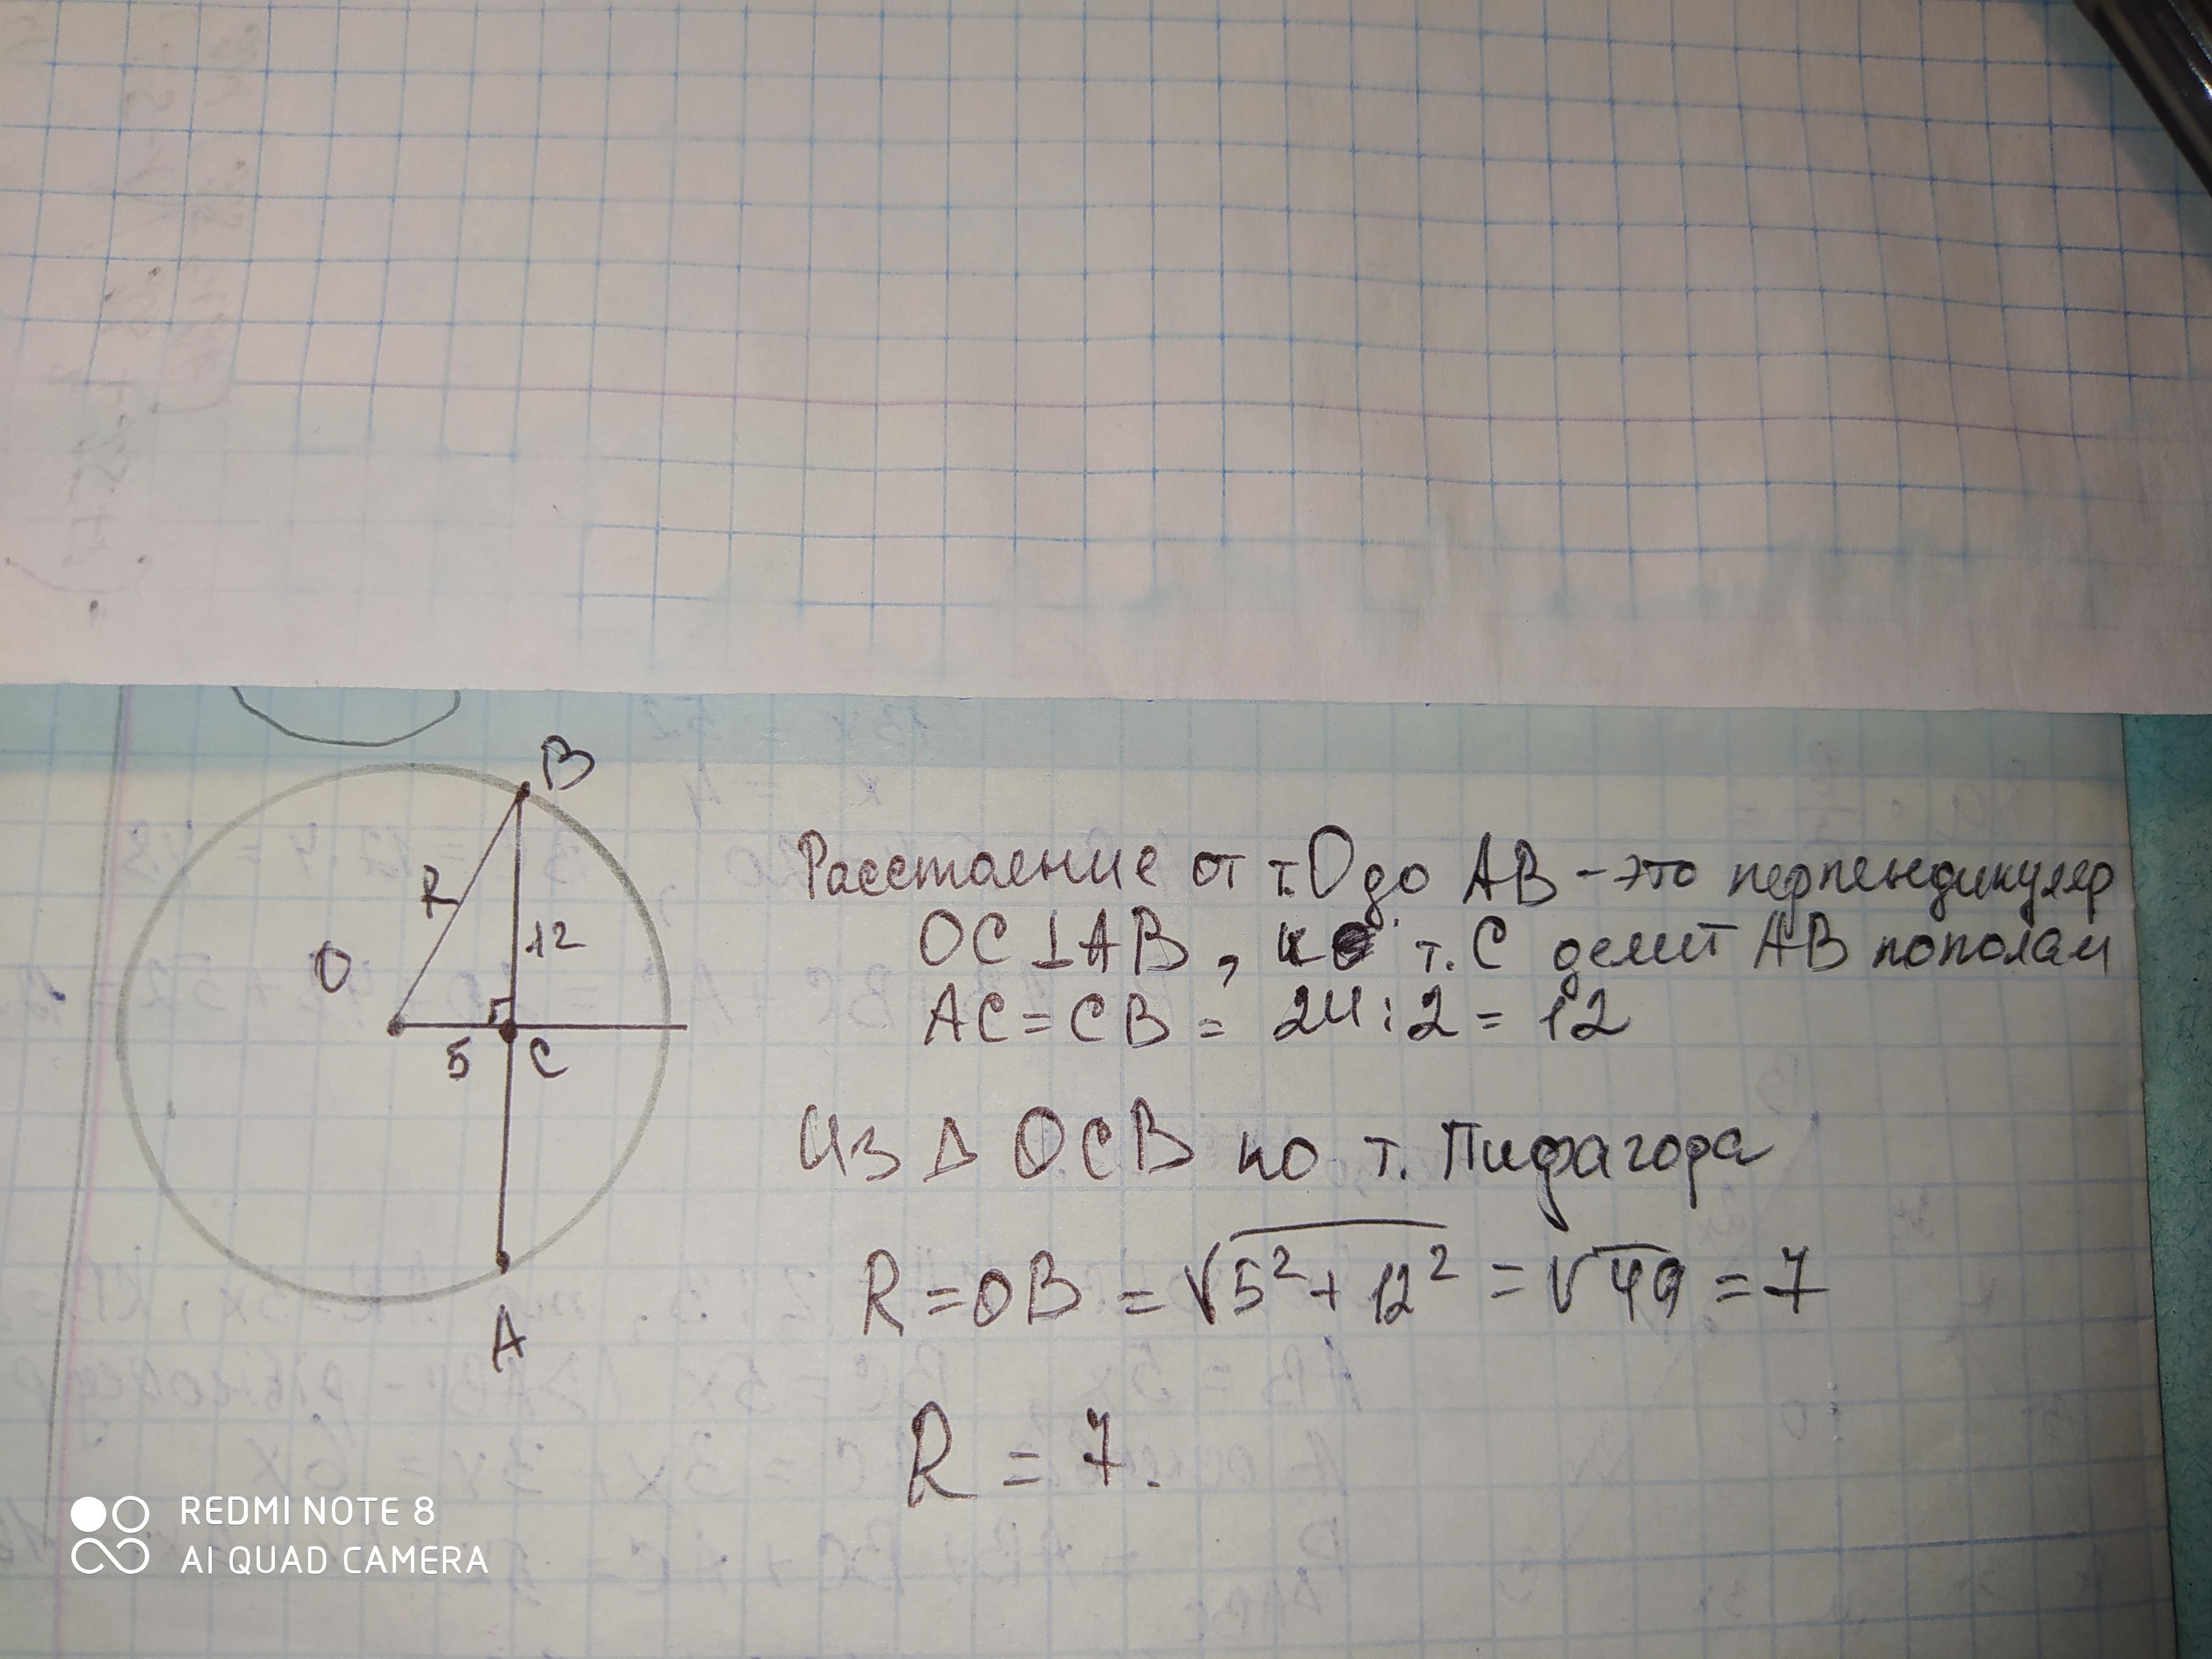 B
R
12
O
5 C
A
Расстоение от т.О до AB - это перпендикуляр
OC⊥AB, т.C делит AB пополам
AC = CB = 24 : 2 = 12
Из Δ OCB по т. Пифагора
R = OB = √5² + 12² = √49 = 7
R = 7.
REDMI NOTE 8
AI QUAD CAMERA